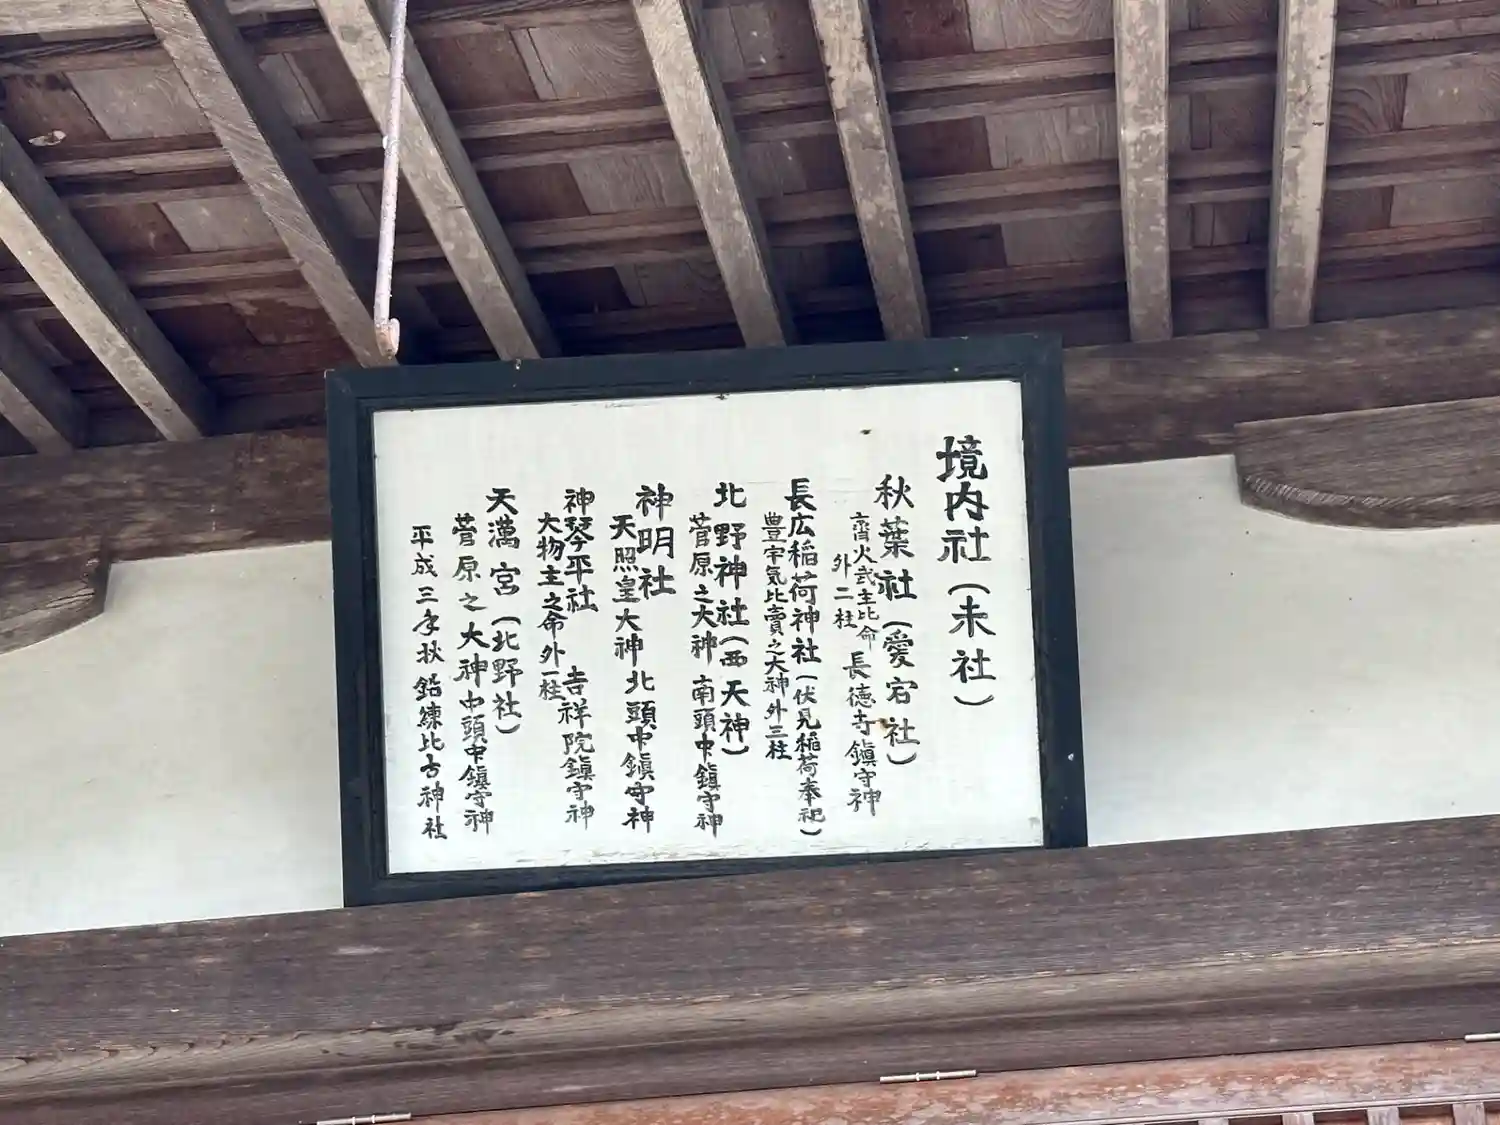 境内社(末社)
秋葉社(愛宕社)
齊火武主比命
外二柱
長徳寺鎭守神
長広稲荷神社(伏見稲荷奉祀)
豊宇気比賣之大神外三柱
北野神社(西天神)
菅原之大神 南頭中鎭守神
神明社
天照皇大神 北頭中鎭守神
神琴平社 吉祥院鎭守神
大物主之命外一柱
天満宮(北野社)
菅原之大神中頭中鎮守神
平成三年秋鉛練比古神社